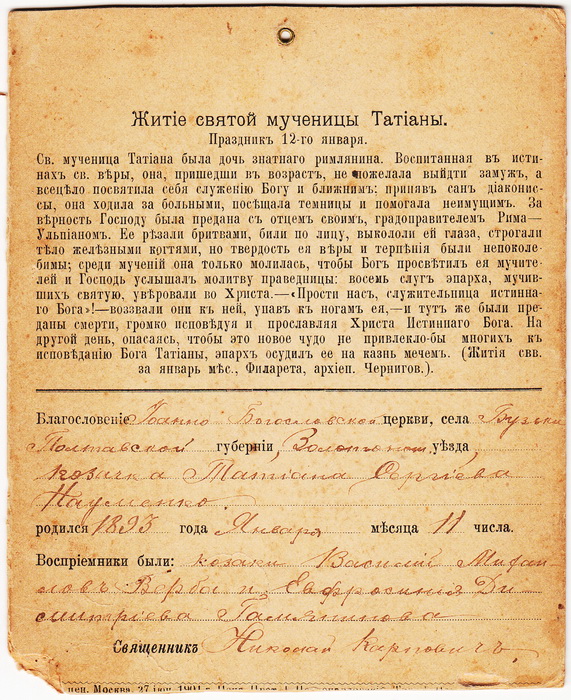 Житіе святой мученицы Татіаны.
Праздникъ 12-го января.
Св. мученица Татіана была дочь знатнаго римлянина. Воспитанная въ исти-
нахъ св. вѣры, она, пришедши въ возрастъ, не пожелала выйдти замужъ, а
всецѣло посвятила себя служенію Богу и ближнимъ: принявъ санъ діаконис-
сы, она ходила за больными, посѣщала темницы и помогала неимущимъ. За
вѣрность Господу была предана съ отцемъ своимъ, градоправителемъ Рима—
Ульпіаномъ. Ее рѣзали бритвами, били по лицу, выкололи ей глаза, строгали
тѣло желѣзными когтями, но твердость ея вѣры и терпѣнія были непоколе-
бимы; среди мученій она только молилась, чтобы Богъ просвѣтилъ ея мучите-
лей и Господь услышалъ молитву праведницы: восемь слугъ эпарха, мучив-
шихъ святую, увѣровали во Христа.—«Прости насъ, служительница истинна-
го Бога»!—воззвали они къ ней, упавъ къ ногамъ ея,—и тутъ же были пре-
даны смерти, громко исповѣдуя и прославляя Христа Истиннаго Бога. На
другой день, опасаясь, чтобы это новое чудо не привлекло-бы многихъ къ
исповѣданію Бога Татіаны, эпархъ осудилъ ее на казнь мечемъ. (Житія свв.
за январь мѣс., Филарета, архіеп. Чернигов.).
Благословеніе Іоанно Богословской церкви, села
Полтавской губерніи, уѣзда,
козачка Татіана Сергіева
Науменко.
родился 1893 года Января мѣсяца 11 числа.
Воспріемники были: козаки Василій Михаи-
ловъ Верба и Евфросинія Ди
митріева
Священникъ Николай Карповичъ.
цен. Москва, 27 іюн. 1901 г.